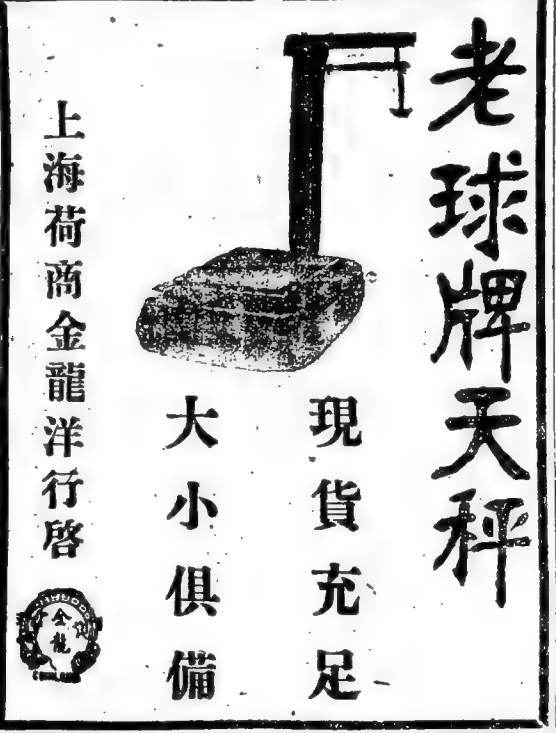 老球牌天秤
現貨充足
大小俱備
上海荷商金龍洋行啓
金龍